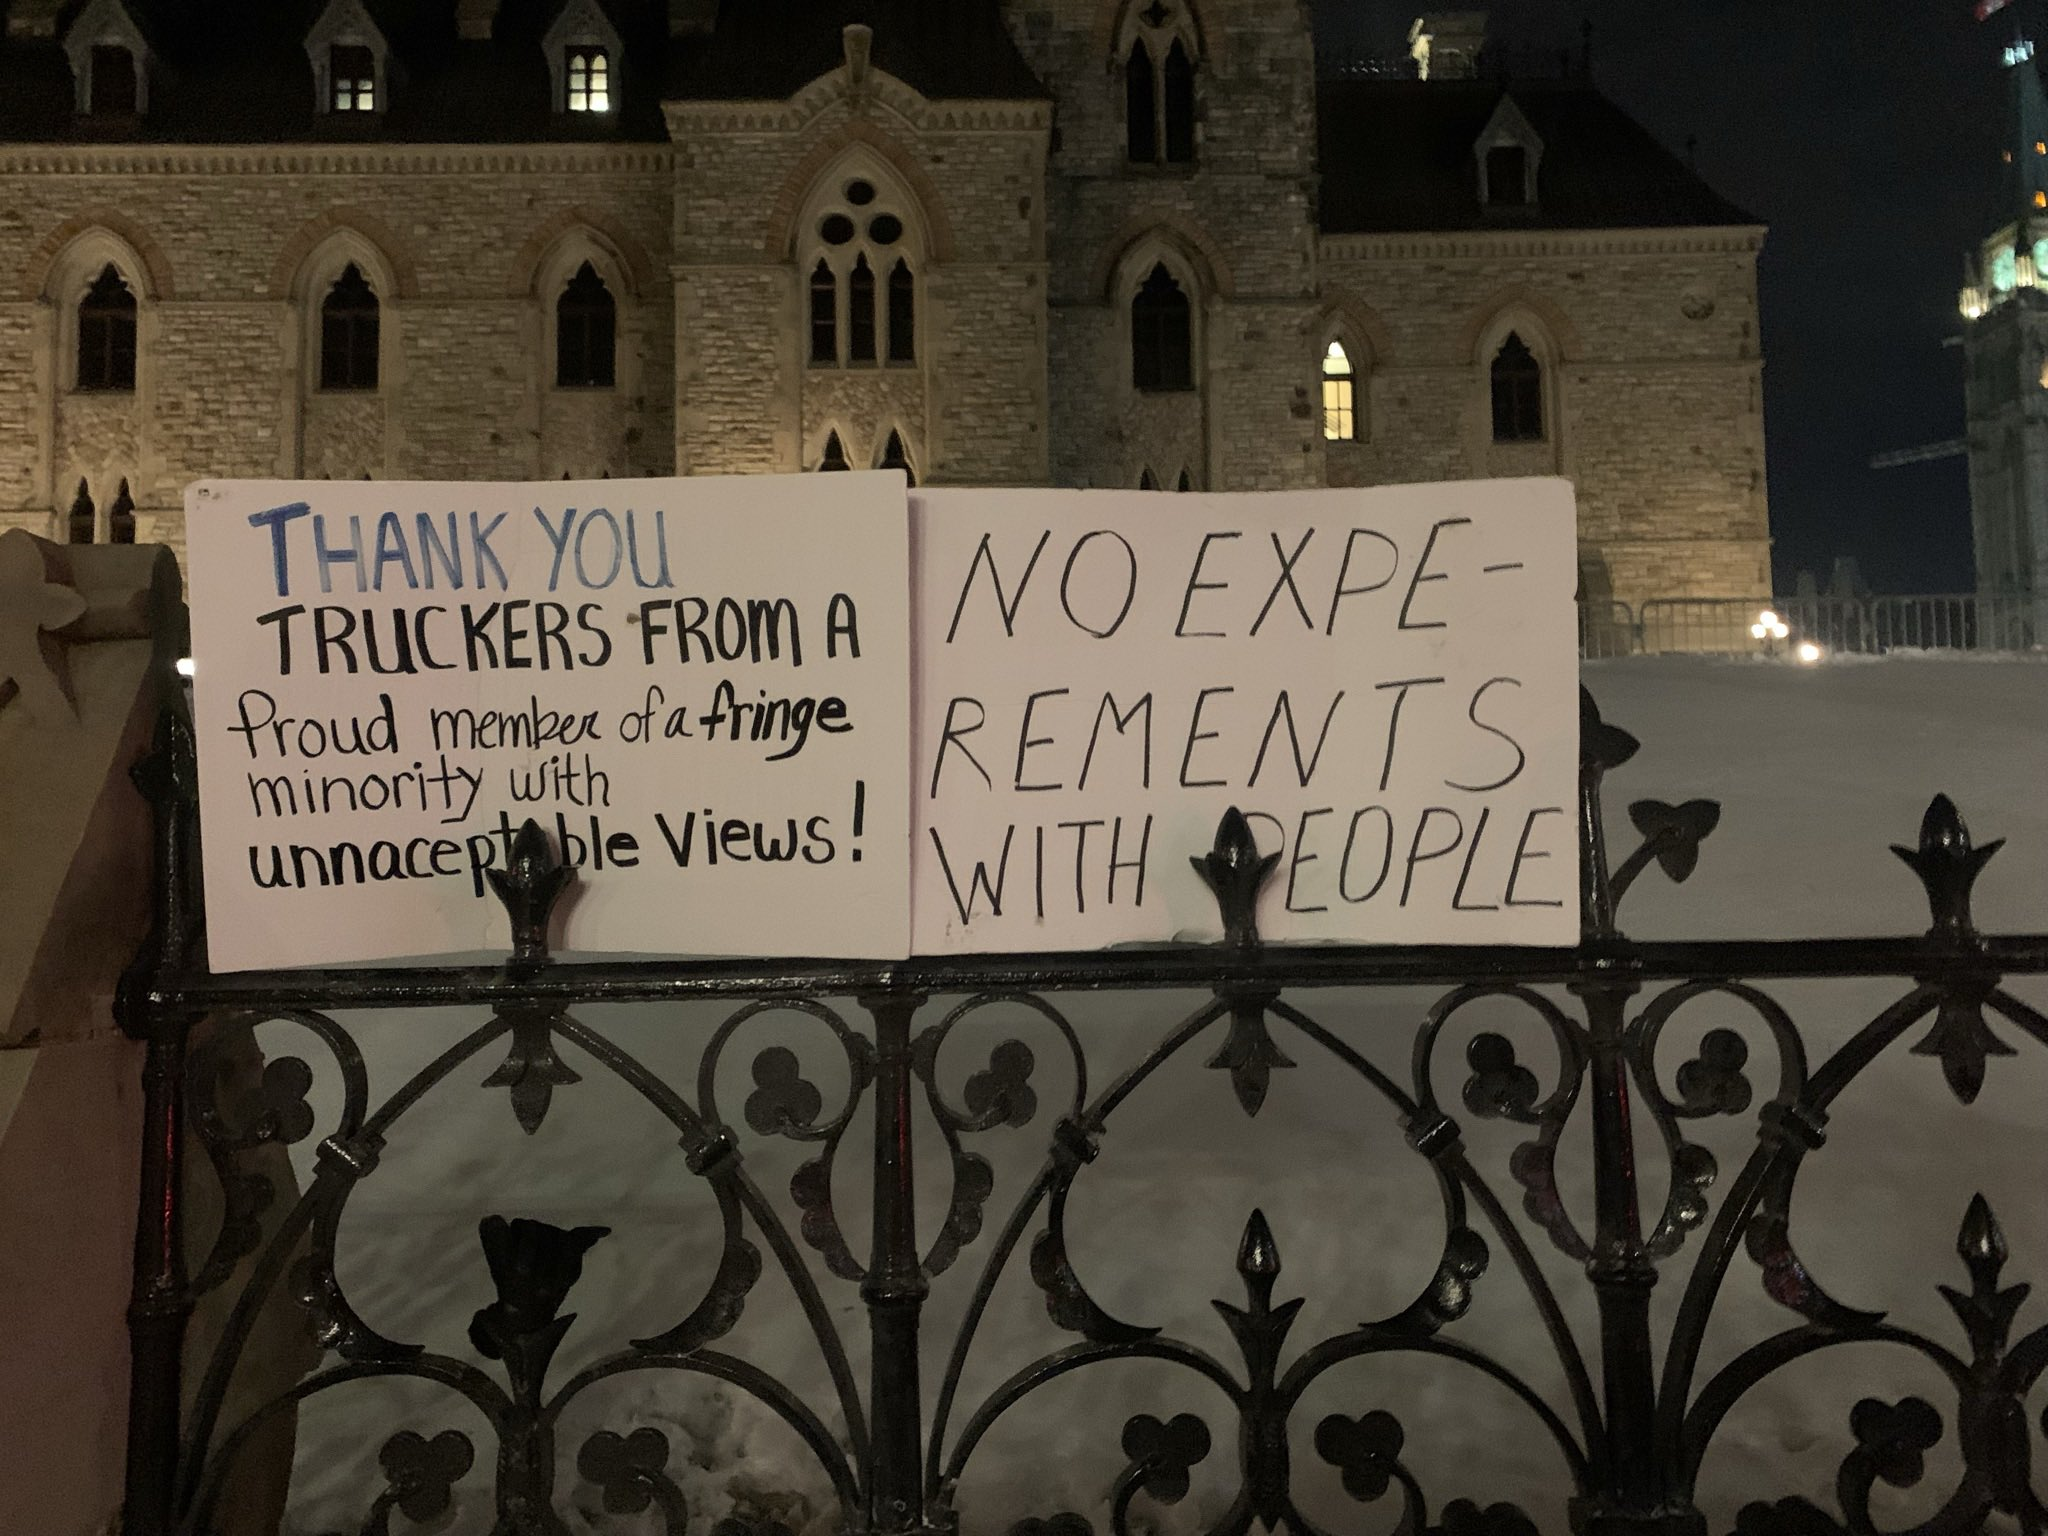 THANK YOU
TRUCKERS FROM A
Proud member of a fringe
minority with
unnaceptable Views!
NO EXPE-
REMENTS
WITH PEOPLE